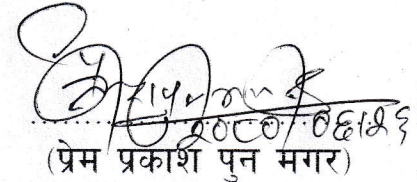 २०८०।०६।२६
(प्रेम प्रकाश पुन मगर)